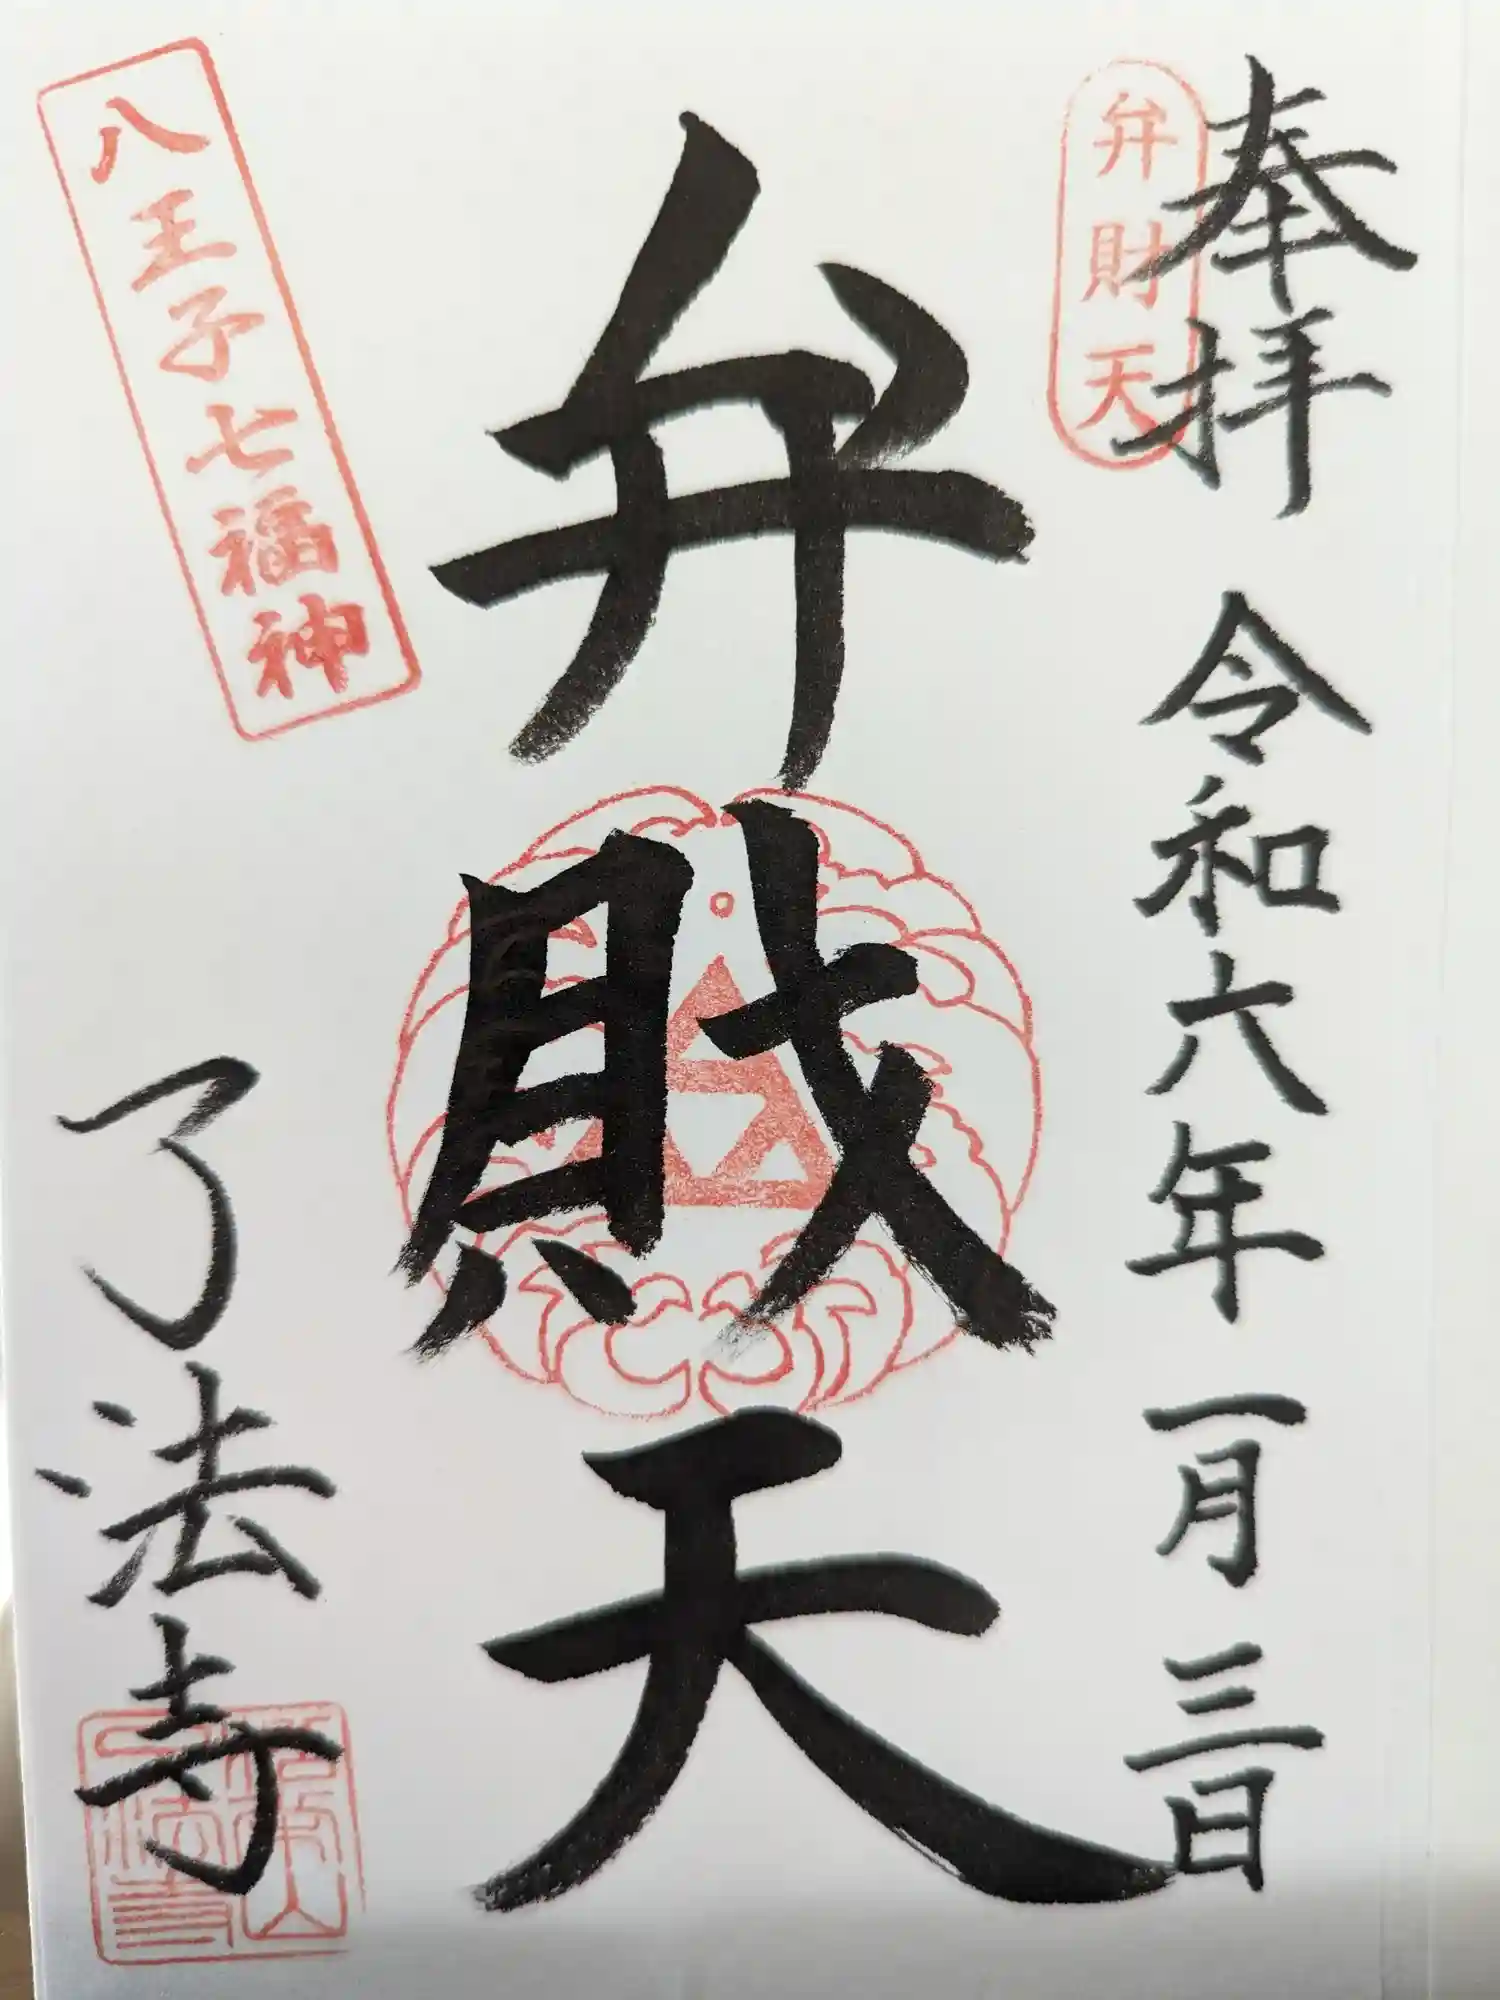 奉拝 令和六年一月三日
弁財天
弁財天
八王子七福神
了法寺